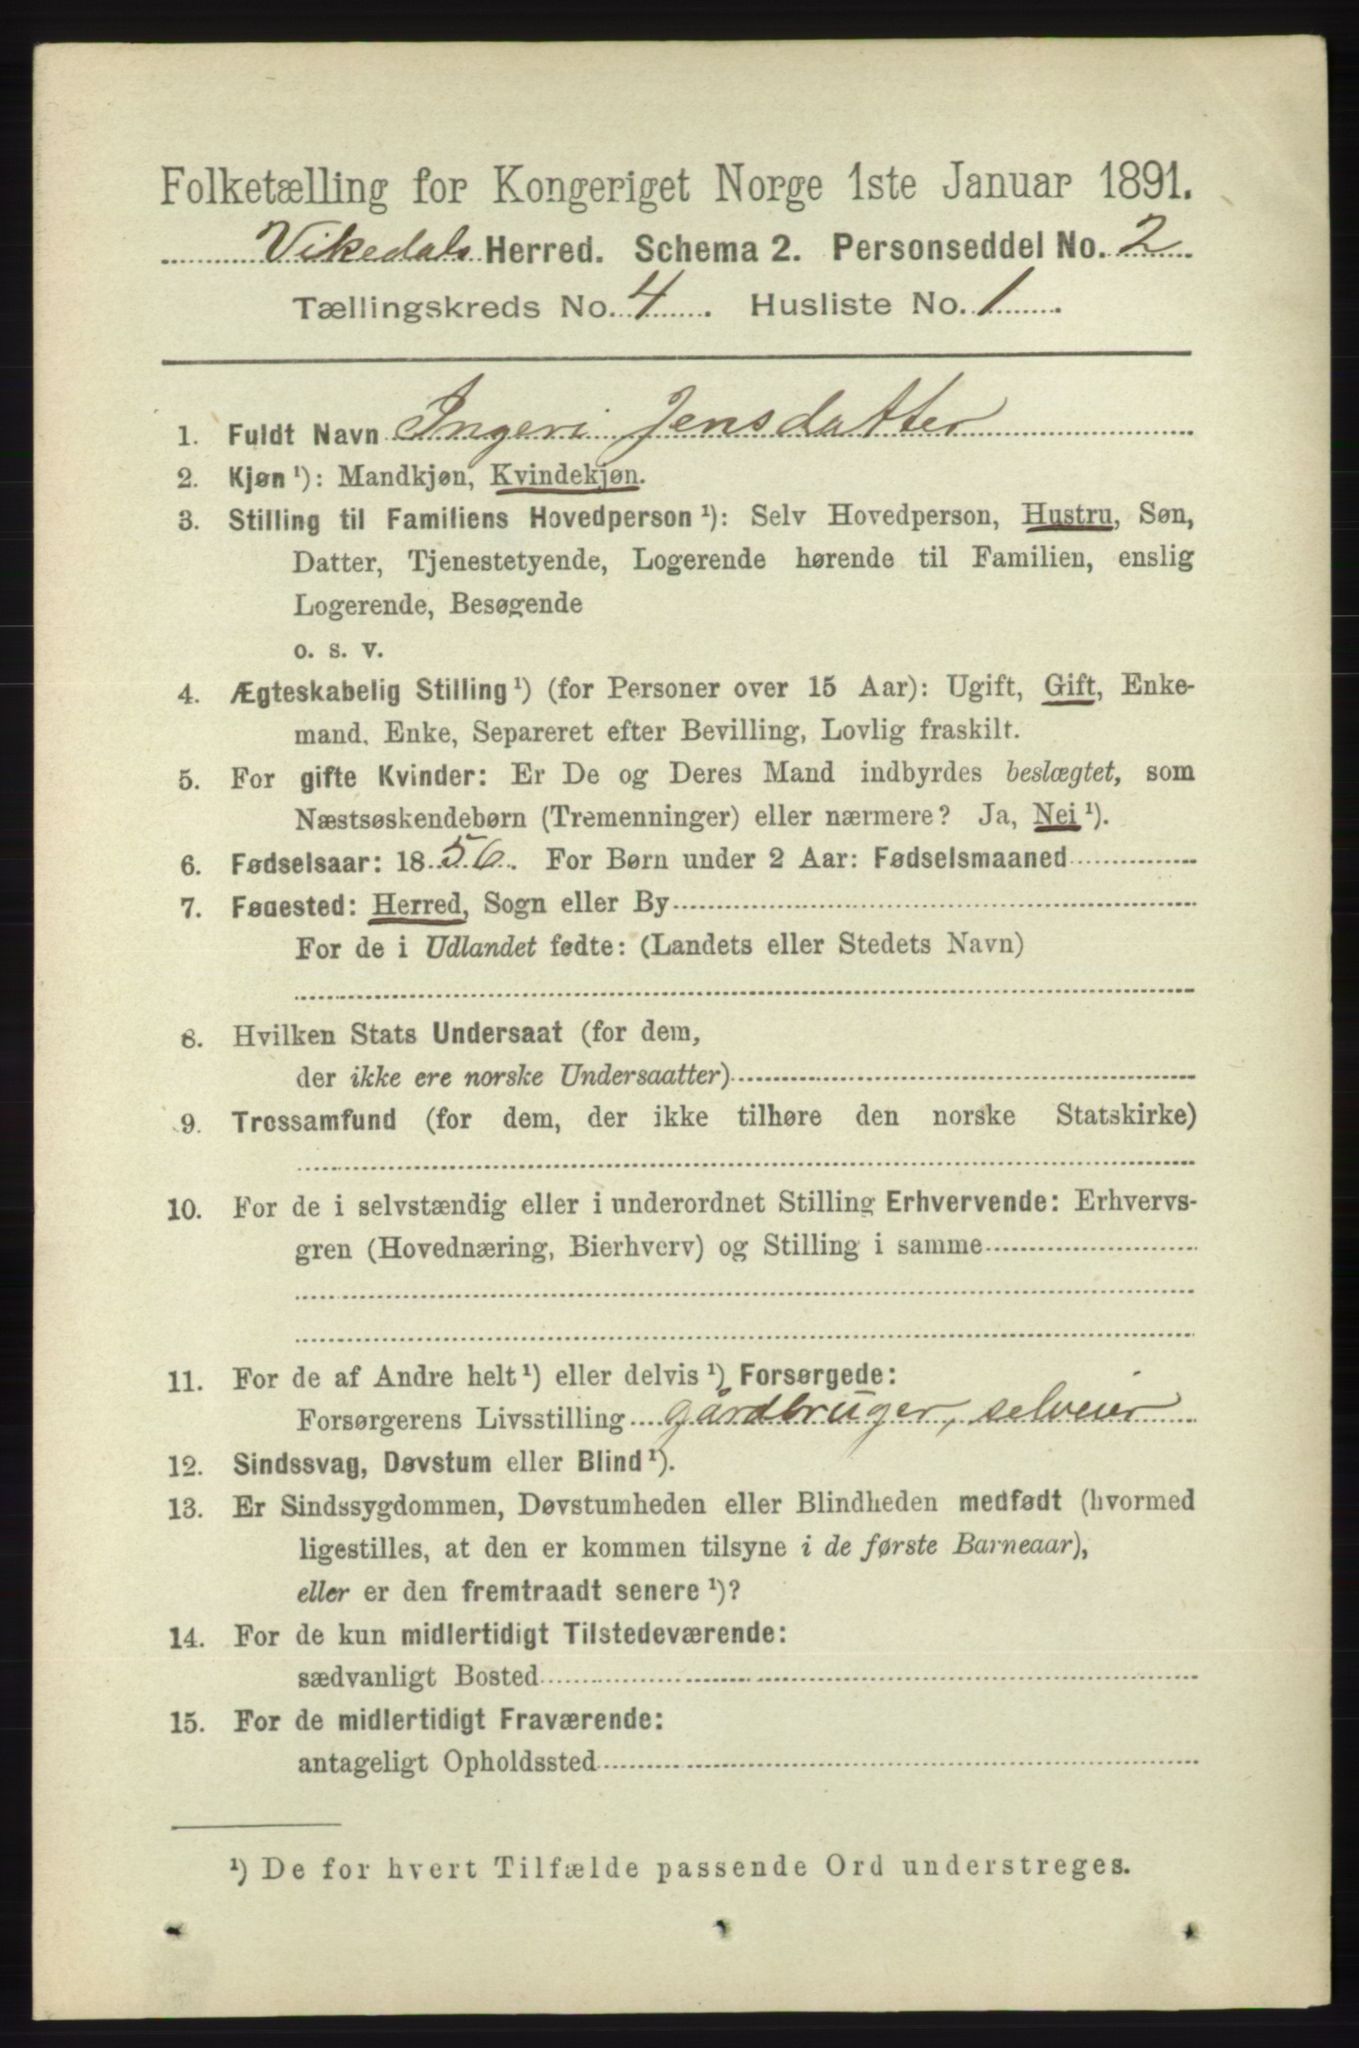 Folketælling for Kongeriget Norge 1ste Januar 1891.
Vikedals Herred. Schema 2. Personseddel No. 2
Tællingskreds No. 4. Husliste No. 1.
1. Fuldt Navn Ingeri Jensdatter
2. Kjøn ¹): Mandkjøn, Kvindekjøn.
3. Stilling til Familiens Hovedperson ¹): Selv Hovedperson, Hustru, Søn,
Datter, Tjenestetyende, Logerende hørende til Familien, enslig
Logerende, Besøgende
o. s. v.
4. Ægteskabelig Stilling ¹) (for Personer over 15 Aar): Ugift, Gift, Enke-
mand, Enke, Separeret efter Bevilling, Lovlig fraskilt.
5. For gifte Kvinder: Er De og Deres Mand indbyrdes beslægtet, som
Næstsøskendebørn (Tremenninger) eller nærmere? Ja, Nei ¹).
6. Fødselsaar: 1856. For Børn under 2 Aar: Fødselsmaaned
7. Fødested: Herred, Sogn eller By
For de i Udlandet fødte: (Landets eller Stedets Navn)
8. Hvilken Stats Undersaat (for dem,
der ikke ere norske Undersaatter)
9. Trossamfund (for dem, der ikke tilhøre den norske Statskirke)
10. For de i selvstændig eller i underordnet Stilling Erhvervende: Erhvervs-
gren (Hovednæring, Bierhverv) og Stilling i samme
11. For de af Andre helt ¹) eller delvis ¹) Forsørgede:
Forsørgerens Livsstilling gårdbruger, selveier
12. Sindssvag, Døvstum eller Blind ¹).
13. Er Sindssygdommen, Døvstumheden eller Blindheden medfødt (hvormed
ligestilles, at den er kommen tilsyne i de første Barneaar),
eller er den fremtraadt senere ¹)?
14. For de kun midlertidigt Tilstedeværende:
sædvanligt Bosted
15. For de midlertidigt Fraværende:
antageligt Opholdssted
¹) De for hvert Tilfælde passende Ord understreges.